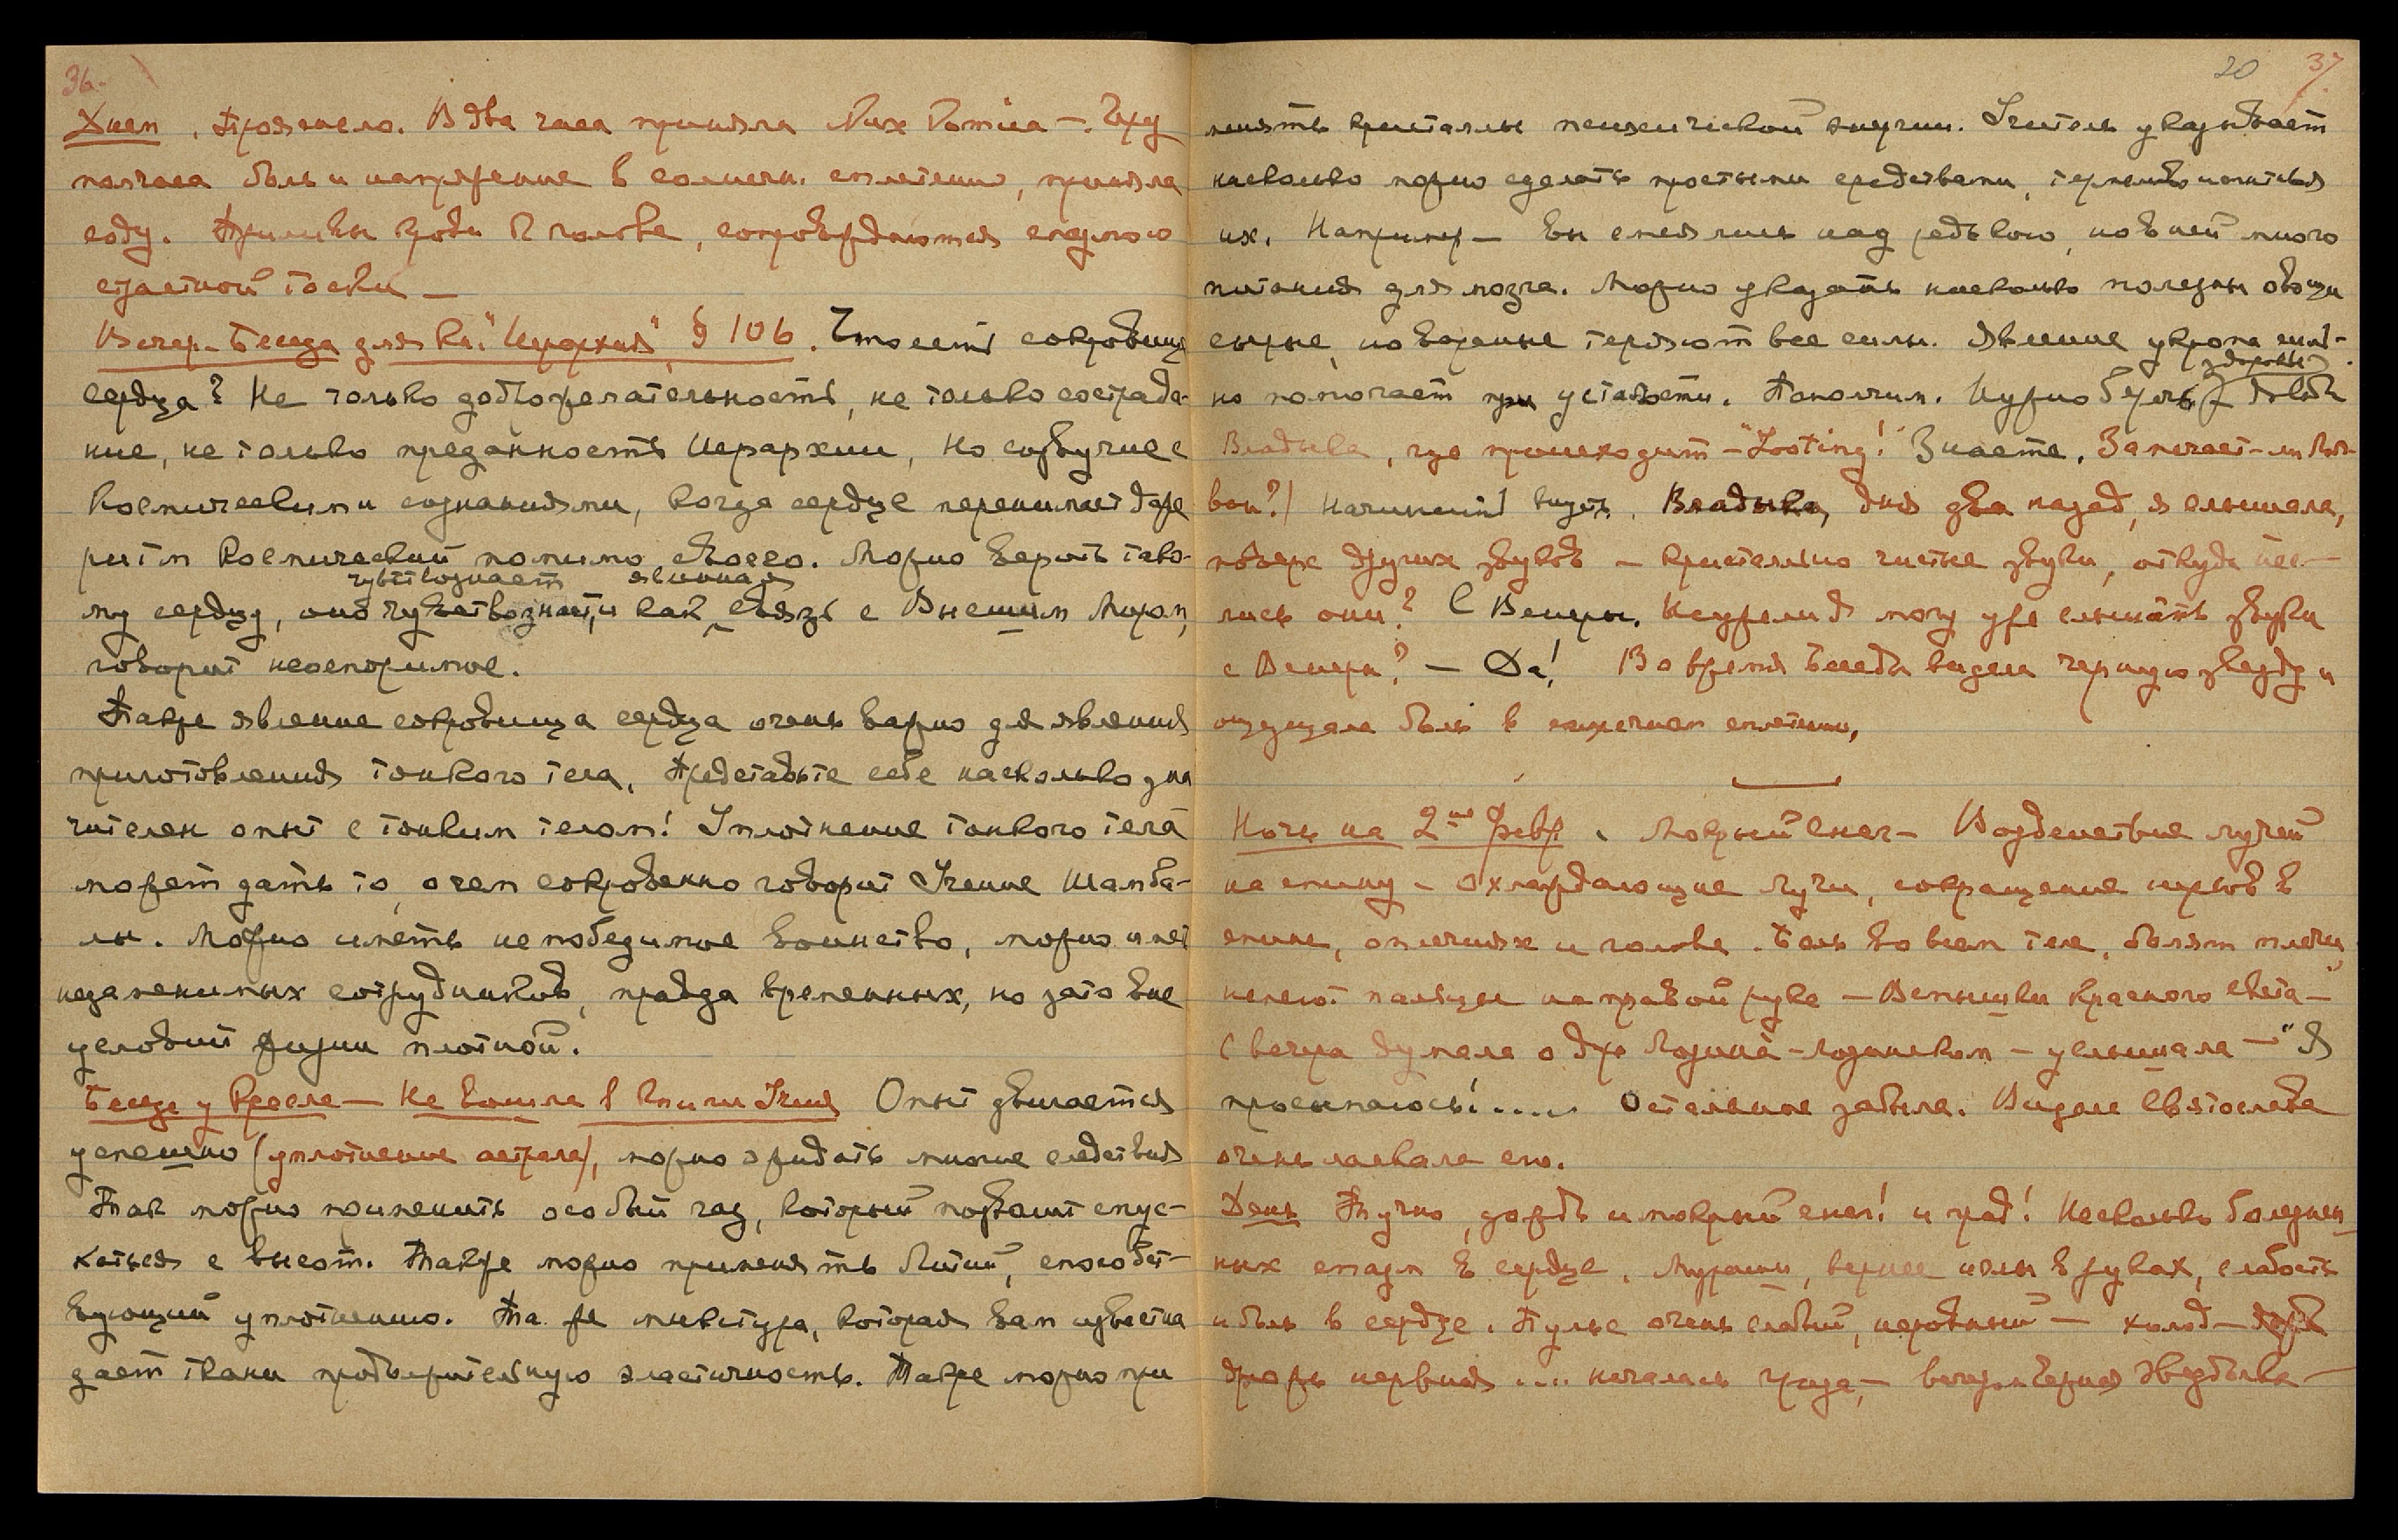 36.
Днем. Прояснело. В два часа приняла Nux Vomica —. Через
полчаса боль и напряжение в солнечн. сплетении, приняла
соду. Приливы крови к голове, сопровождаются
страстной тоски —
Вечер – Беседа для кн. "Иерархия" § 106. Что есть сокровище
сердца? Не только доброжелательность, не только сострада-
ние, не только преданность Иерархии, но созвучие с
Космическими сознаниями, когда сердце перенимает даже
ритм Космический помимо своего. Можно верить тако-
чувствознает явленная
му сердцу, оно чувствознает, и как связь с Внешним Миром,
говорит неоспоримое.
Также явление сокровища сердца очень важно для явления
приготовления тонкого тела. Представьте себе насколько зна
чителен опыт с тонким телом! Уплотнение тонкого тела
может дать то, о чем сокровенно говорит Учение Шамба-
лы. Можно иметь непобедимое воинство, можно иметь
незаменимых сотрудников, правда временных, но зато вне
условий жизни плотной.
Беседа у Кресла — Не вошла в Книги Учения Опыт движается
успешно (уплотнение астрала), можно ожидать многие следствия
Так можно применить особый газ, который позволит спус-
каться с высот. Также можно применять Литий, способст-
вующий уплотнению. Та же микстура, которая вам известна
дает ткани предварительную эластичность. Также можно при
20 37.
менять кристаллы психической энергии. Учитель указывает
насколько можно сделать простыми средствами,
их. Например — вы смеялись над редькою, но в ней много
питания для мозга. Можно указать насколько полезны овощи
сырые, но вареные теряют все силы. Явление укропа силь-
здоровье
но помогает при усталости. Помолчим. Нужно беречь
Владыка, где происходит — "Looting!" Знаете. Замечает-ли
вои?/ Начинает видеть. Владыка, дня два назад, я слышала,
поверх других звуков — кристально чистые звуки, откуда нес-
лись они? С Венеры. Неужели я могу уже слышать звуки
с Венеры? — Да! Во время Беседы видела черную звезду и
ощущала боль в солнечном сплетении.
Ночь на 2ое Февр. Мокрый снег — Воздействие лучей
на спину – охлаждающие лучи, сокращение нервов в
спине, оплечиях и голове. Боль во всем теле, болят плечи,
немеют пальцы на правой руке — Вспышки красного света —
С вечера думала о др. Лозинѐ – Лозинском — услышала — "Я
просыпаюсь!..... Остальное забыла. Видела Святослава
очень ласкала его.
День Тучно, дождь и мокрый снег! и град! Несколько болезнен
ных спазм в сердце. Мурашки, вернее иглы в руках, слабость
и боль в сердце. Пульс очень слабый, неровный — холод —
дрожь нервная .... началась гроза, — вечером Черная звездочка —